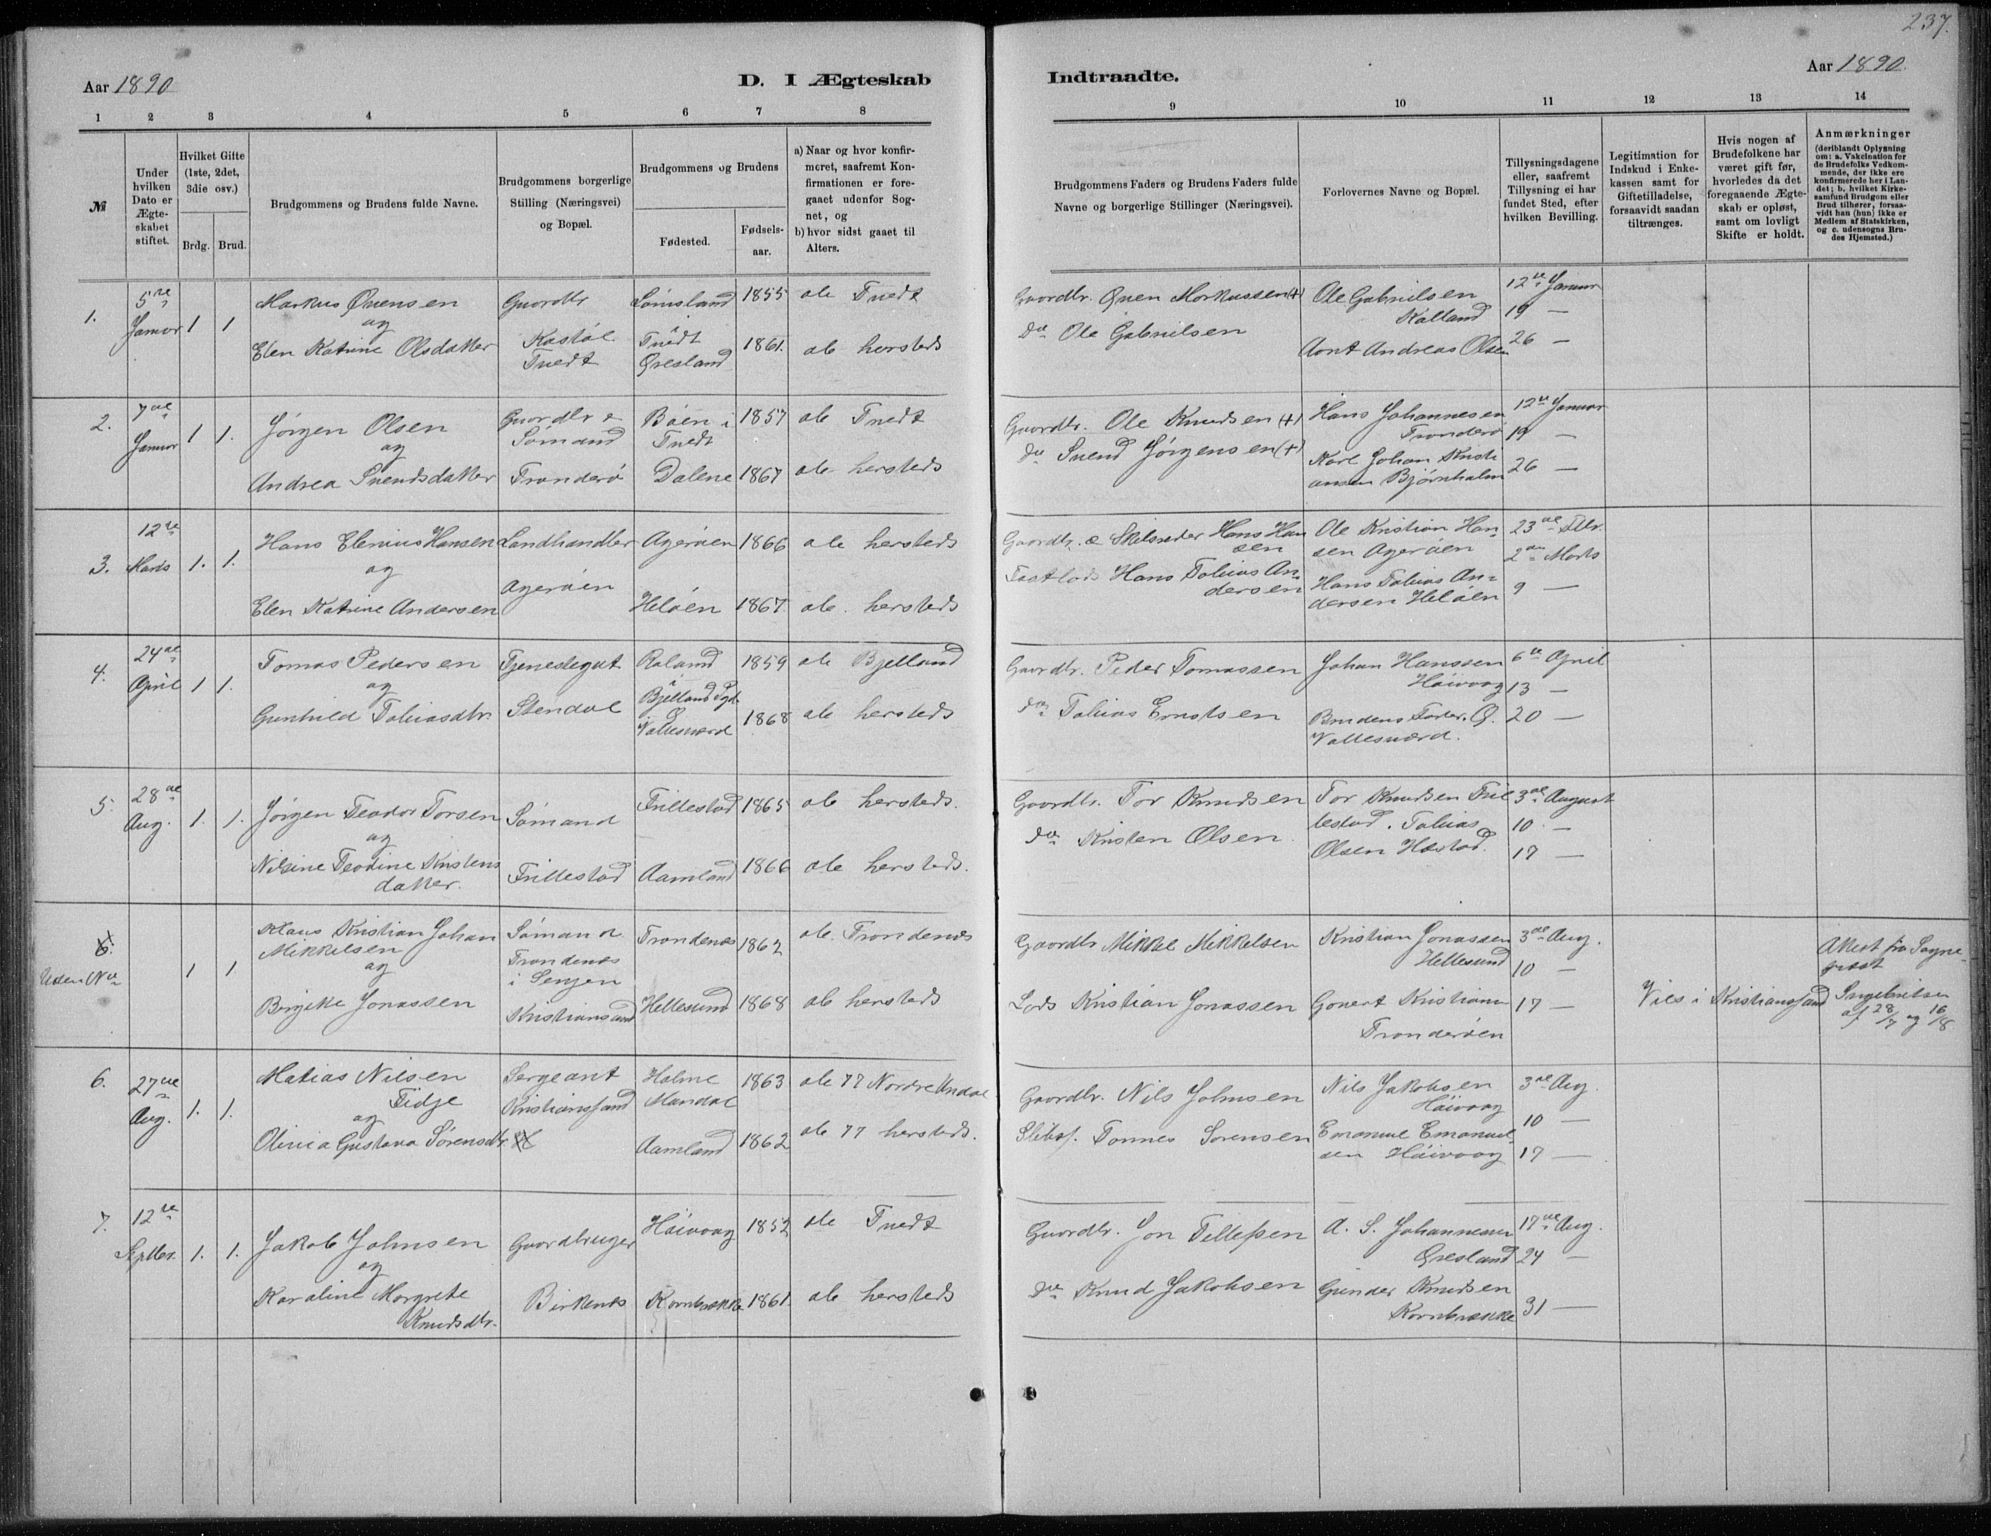 237.
Aar 1890
D. I Ægteskab
Indtraadte.
Aar 1890.
1 2 3 4 5 6 7 8
9 10 11 12 13 14
№
Under hvilken Dato er Ægteskabet stiftet.
Hvilket Gifte (1ste, 2det, 3die osv.)
Brdg. Brud.
Brudgommens og Brudens fulde Navne.
Brudgommens borgerlige Stilling (Næringsvei) og Bopæl.
Brudgommens og Brudens
Fødested.
Fødselsaar.
a) Naar og hvor konfirmeret, saafremt Konfirmationen er foregaaet udenfor Sognet, og
b) hvor sidst gaaet til Alters.
Brudgommens Faders og Brudens Faders fulde Navne og borgerlige Stillinger (Næringsvei).
Forlovernes Navne og Bopæl.
Tillysningsdagene eller, saafremt Tillysning ei har fundet Sted, efter hvilken Bevilling.
Legitimation for Indskud i Enkekassen samt for Giftetilladelse, forsaavidt saadan tiltrænges.
Hvis nogen af Brudefolkene har været gift før, hvorledes da det foregaaende Ægteskab er opløst, samt om lovligt Skifte er holdt.
Anmærkninger
(deriblandt Oplysning om: a. Vakcination for de Brudefolks Vedkommende, der ikke ere konfirmerede her i Landet; b. hvilket Kirkesamfund Brudgom eller Brud tilhører, forsaavidt han (hun) ikke er Medlem af Statskirken, og c. udensogns Brudes Hjemsted.)
1. 5te Januar 1 1
Markus Ovensen
og
Elen Katrine Olsdatter
Gaardbr
Kastøl
Tvedt
Lømsland i Tvedt 1855
Øresland 1861.
alt Tvedt
alt hersteds
Gaardbr. Oven Markussen (+)
do Ole Gabrielsen
Ole Gabrielsen
Kalland
Aont Andreas Olsen
12te Januar
19 —
26 —
2. 7de Januar 1 1.
Jørgen Olsen
og
Andrea Svendsdatter
Gaardbr &
Sømand
Tronderø
Bøen i Tvedt 1857
Dalene 1867
alt Tvedt
alt hersteds
Gaardbr. Ole Knudsen (+)
do Svend Jørgensen (+)
Hans Johannesen
Tronderø
Karl Johan Kristi
ansen Bjørnholm
12te Januar
19 —
26 —
3. 12te Marts 1. 1.
Hans Elenius Hansen
og
Elen Katrine Andersen
Landhandler
Agerøen
Agerøen 1866
Heløen 1867.
alt hersteds
alt hersteds
Gaardbr. & Skibsreder Hans Han
sen
Fastlods Hans Tobias An-
dersen
Ole Kristian Han-
sen Agerøen
Hans Tobias An-
dersen Heløen
23de Febr.
2den Marts
9 —
4. 24de April 1 1.
Tomas Pedersen
og
Gunhild Tobiasdtr.
Tjenestegut
Stendal
Roland
i
Bjelland 1859
Vallesværd 1868
alt Bjelland
alt hersteds
Gaardbr. Peder Tomassen
do Tobias Erntsen
Johan Hanssen
Høivaag
Brudens Fader. O.
Vallesværd.
6te April
13 —
20 —
5. 28de Aug. 1. 1.
Jørgen Teodor Torsen
og
Nilsine Teodine Kristens
datter.
Sømand
Frillestad
Frillestad 1865
Aamland 1866
alt hersteds.
alt hersteds.
Gaardbr. Tor Knudsen
do Kristen Olsen.
Tor Knudsen Fril
lestad. Tobias
Olsen Hæstad.
3de August
10. —
17 —
6.
Uden No 1 1
Klaus Kristian Johan
Mikkelsen
og
Birgitte Jonassen
Sømand
Trondenæs
i Senjen
Kristiansand
Trondenæs 1862
Hellesund 1868
alt. Trondenæs
alt hersteds
Gaardbr Mikkel Mikkelsen
Lods Kristian Jonassen
Kristian Jonassen
Hellesund
Govert Kristians
Tronderøen
3de Aug.
10 —
17 —
Vies i Kristianssand
Attest fra Sogne-
præst
Ingebretsen
af 28/7 og 16/8
6. 27de Aug. 1. 1.
Matias Nilsen
Tidje
og
Olivia Gustava Sørensdtr
Sergeant
Kristianssand
Halme
Mandal 1863
Aamland 1862
alt 77 Nordre Undal
alt 77 hersteds.
Gaardbr. Nils Johnsen
Skibsf. Tonnes Sorensen
Nils Jakobsen
Høivaag
Emanuel Emanuel-
sen Høivaag
3de Aug.
10 —
17 —
7. 12te Septbr. 1. 1.
Jakob Johnsen
og
Karoline Margrete
Knudsdtr.
Gaardbruger
Birkenes
Høivaag 1852
Kornbrække 1861.
alt Tvedt
alt hersteds
Gaardbr. Jon Tellefsen
do Knud Jakobsen
A. S. Johannesen
Øresland
Gunder Knudsen
Kornbrække
17de Aug.
24 —
31 —